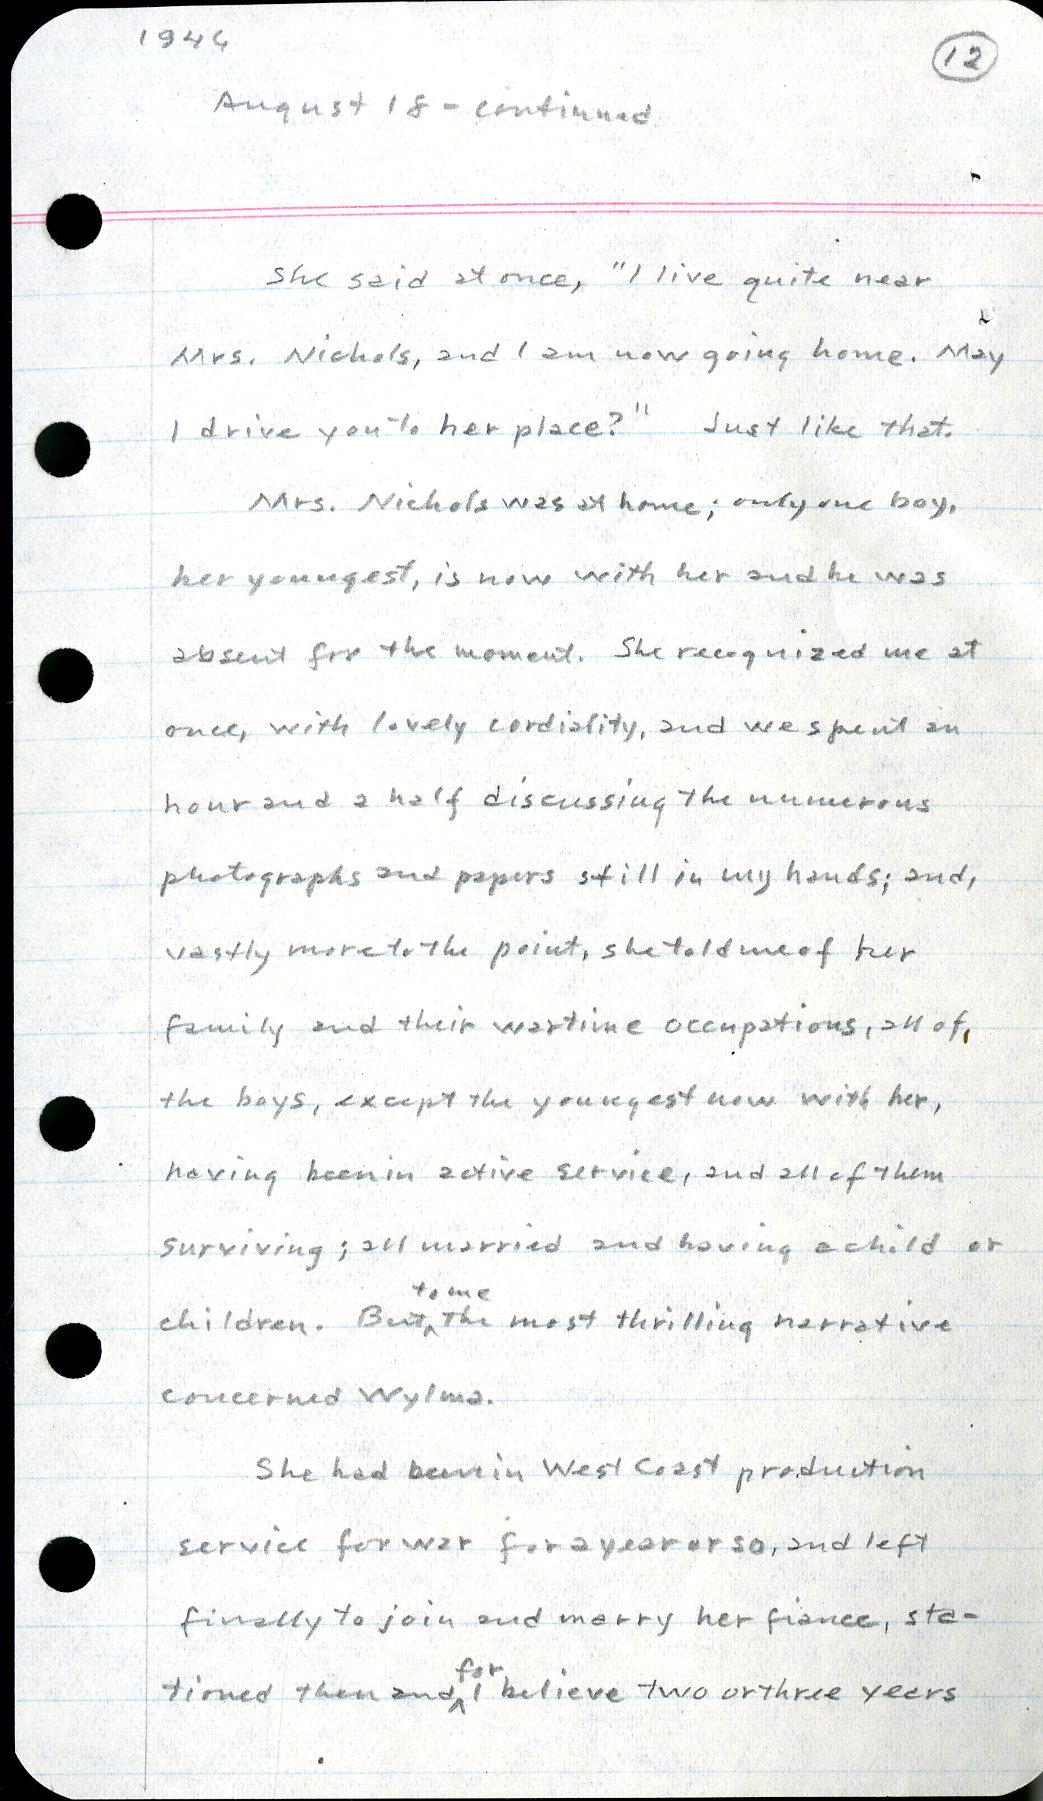 1946
12
August 18 - continued
She said at once, "I live quite near
Mrs. Nichols, and I am now going home. May
I drive you to her place?" Just like that.
Mrs. Nichols was at home; only one boy,
her youngest, is now with her and he was
absent for the moment. She recognized me at
once, with lovely cordiality, and we spent an
hour and a half discussing the numerous
photographs and papers still in my hands; and,
vastly more to the point, she told me of her
family and their wartime occupations, all of,
the boys, except the youngest now with her,
having been in active service, and all of them
surviving; all married and having a child or
to me
children. But ^ the most thrilling narrative
concerned Wylma.
She had been in West Coast production
service for war for a year or so, and left
finally to join and marry her fiance, sta-
for
tioned then and ^ I believe two or three years